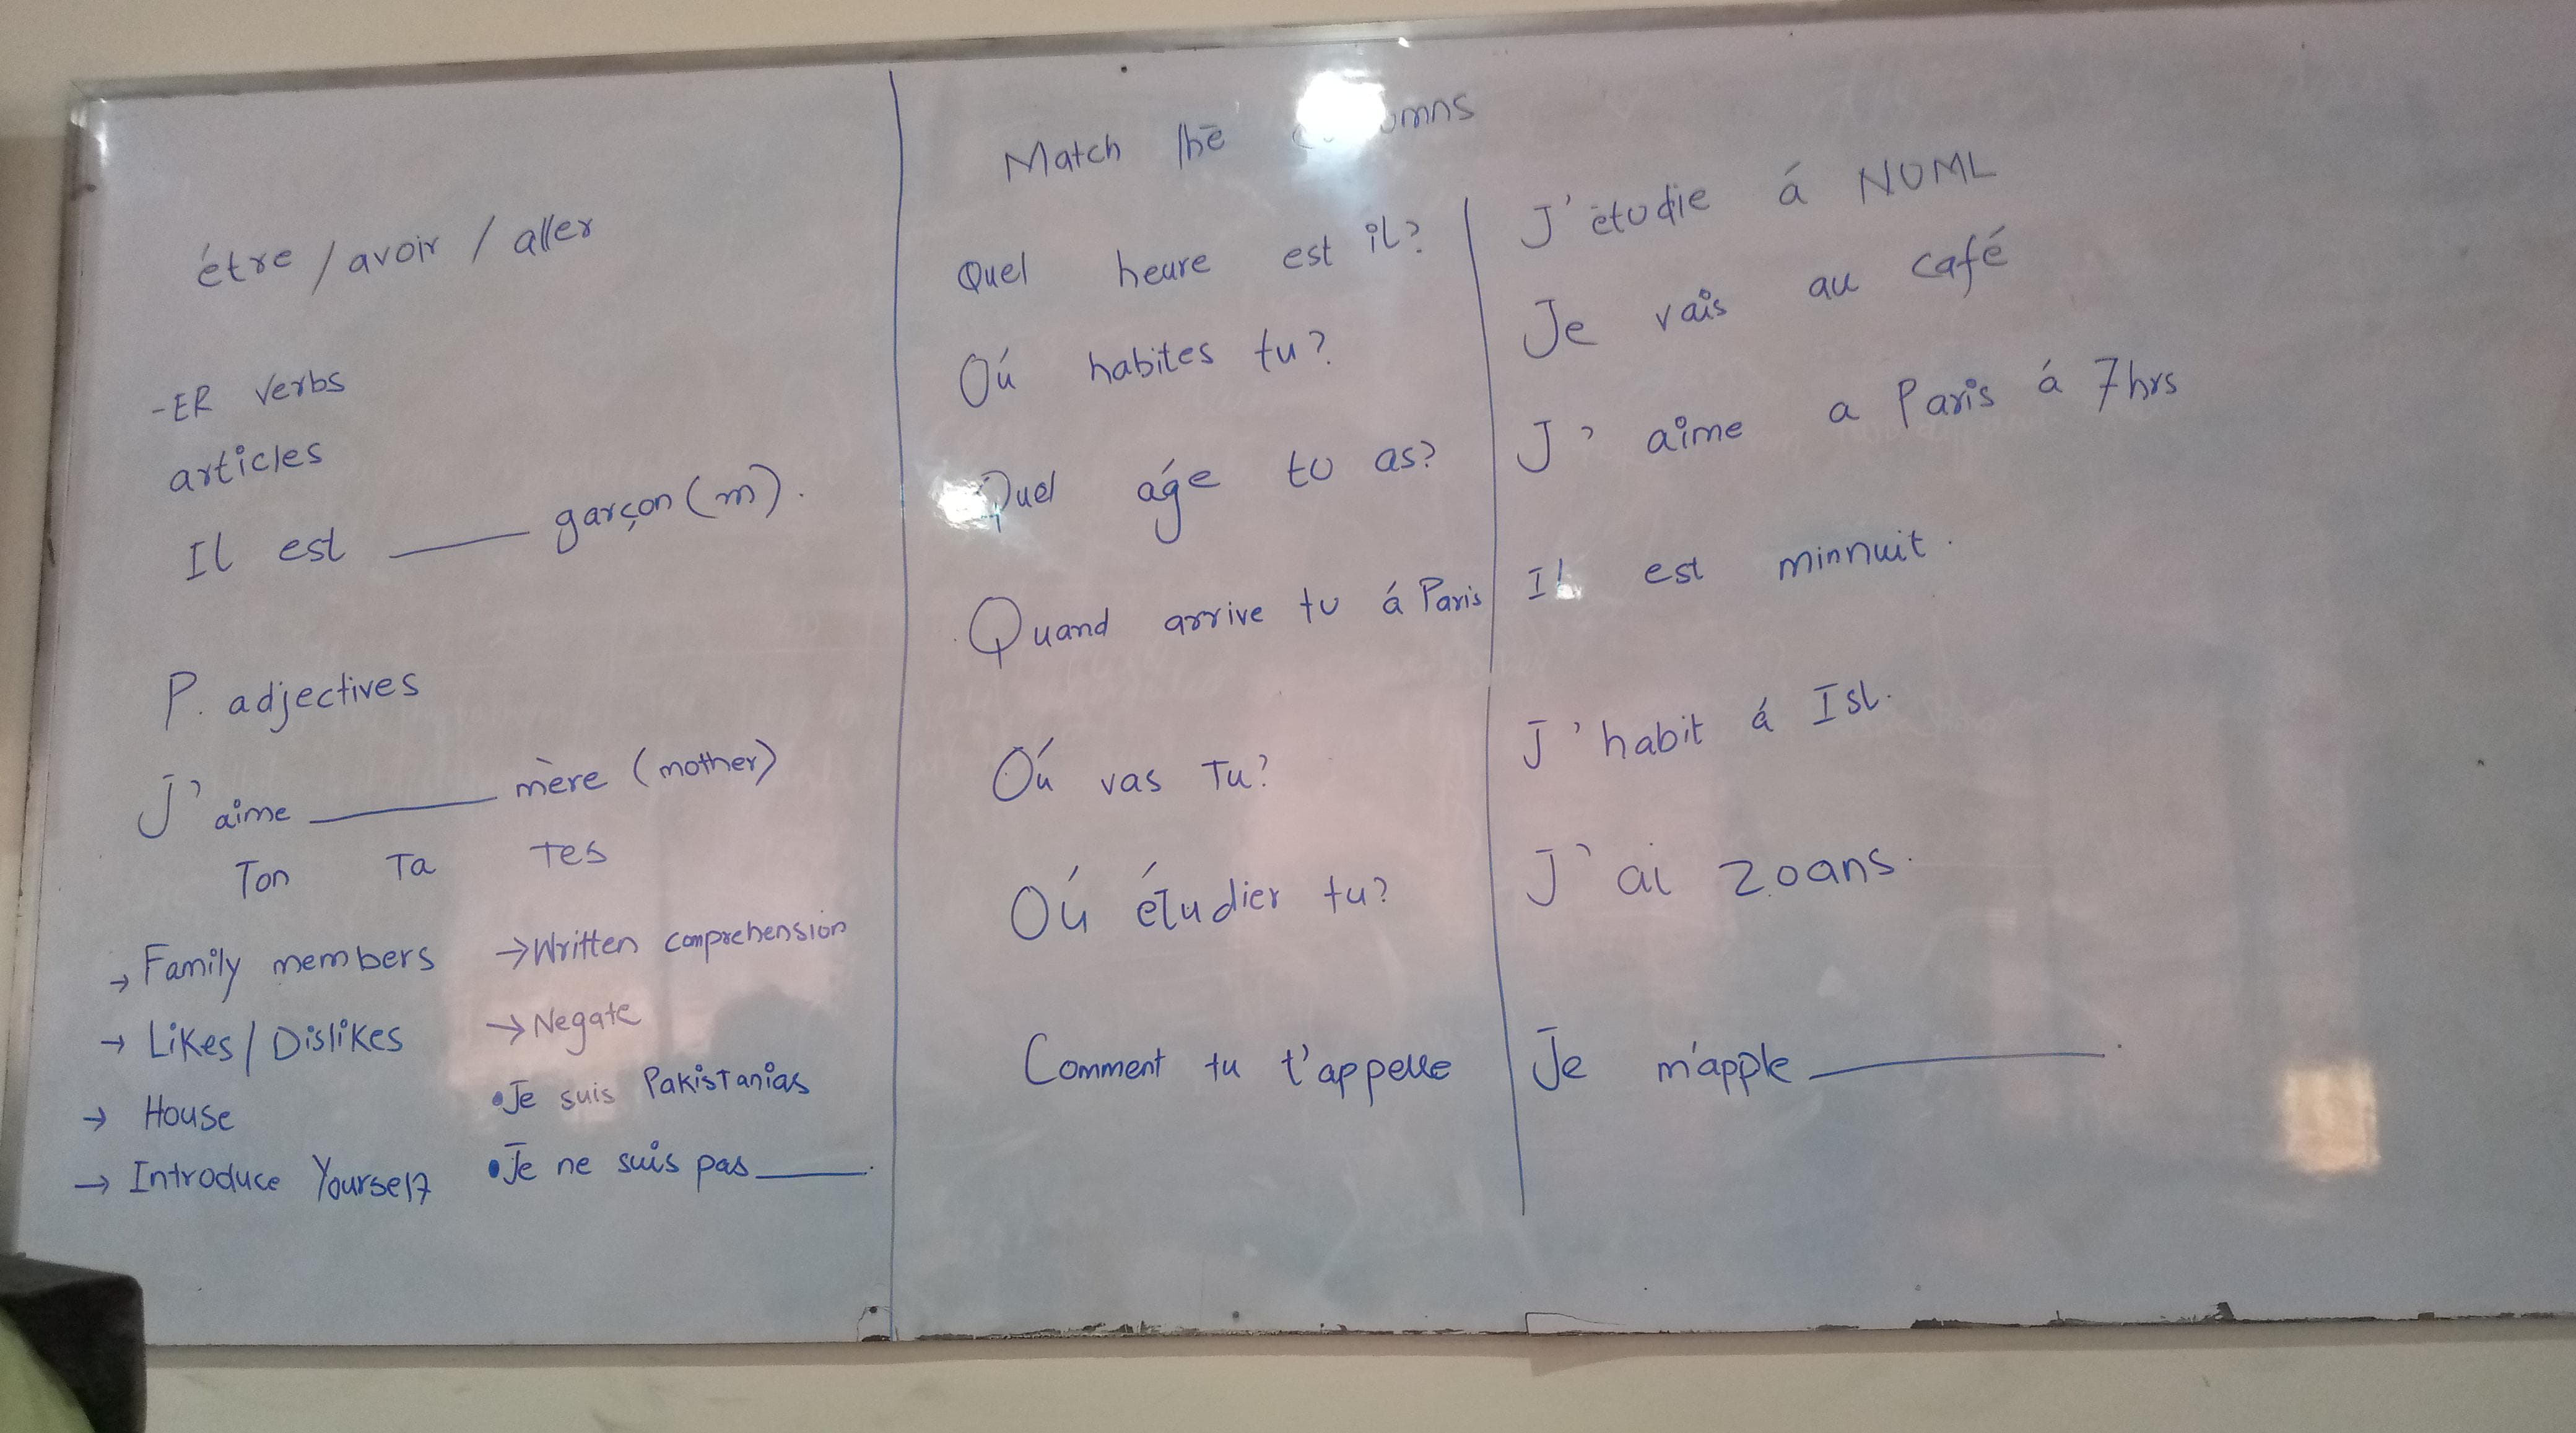 étre / avoir / aller
-ER verbs
articles
Il est ____ garçon (m).
P. adjectives
J'aime ____ mère (mother)
Ton Ta Tes
→ Family members
→ Likes / Dislikes
→ House
→ Introduce Yourself
→ Written comprehension
→ Negate
• Je suis Pakistanias
• Je ne suis pas ____.
Match the
Quel heure est il?
Oú habites tu?
Quel áge tu as?
Quand arrive tu á Paris
Oú vas Tu?
Oú étudier tu?
Comment tu t'appelle
J'étudie á NUML
Je vais au café
J'aime a Paris á 7hrs
Il est minnuit.
J'habit á Isl.
J'ai 20ans.
Je m'apple ____.